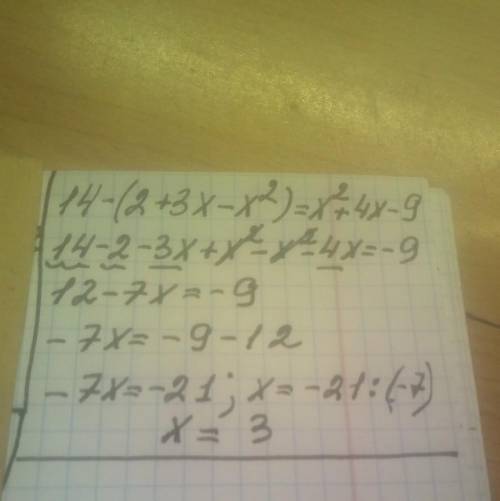 14-(2+3x-x²)=x²+4x-9
14-2-3x+x²-x²-4x=-9
12-7x=-9
-7x=-9-12
-7x=-21; x=-21:(-7)
x=3